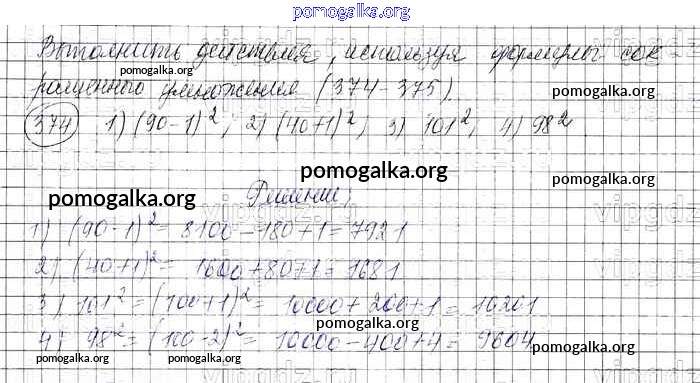 pomogalka.org
Выполнить действия, используя формулы сок
pomogalka.org
ращенного умножения (374-375).
pomogalka.org
374 1) (90-1)², 2) (40+1)², 3) 101², 4) 98²
pomogalka.org
pomogalka.org
pomogalka.org
Решение:
vipgdz.ru
1) (90-1)² = 8100-180+1 = 7921
2) (40+1)² = 1600+80+1 = 1681
3) 101² = (100+1)² = 10000+200+1 = 10201
pomogalka.org
4) 98² = (100-2)² = 10000-400+4 = 9604
pomogalka.org
pomogalka.org
pomogalka.org